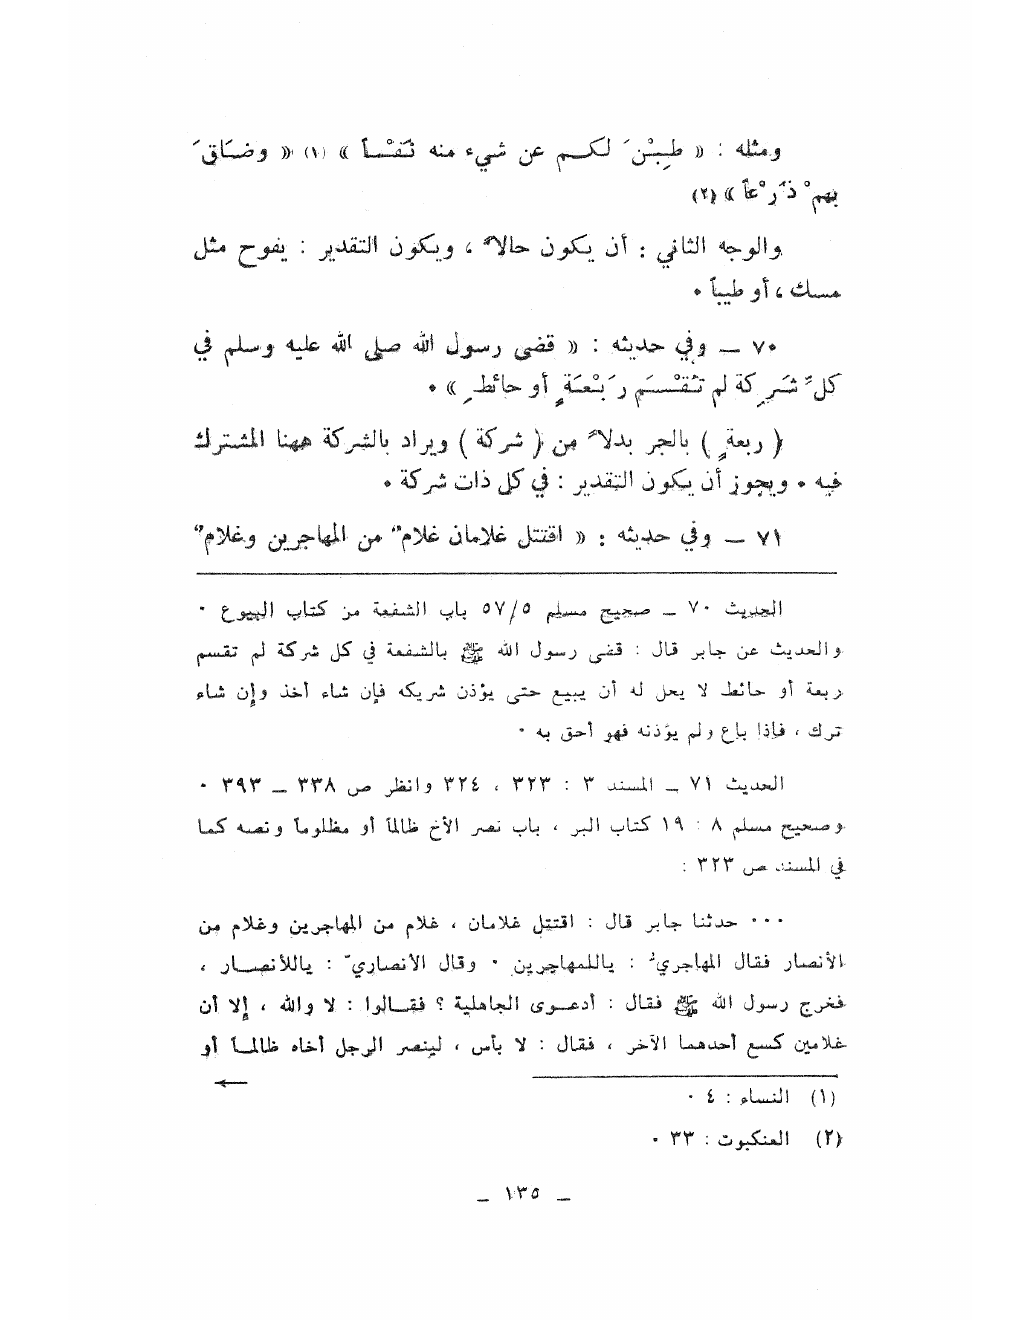 ومثله : « طِبْنَ لكم عن شيء منه نَفْساً » (١) « وضَاقَ
بهمْ ذَرْعاً » (٢)
والوجه الثاني : أن يكون حالاً ، ويكون التقدير : يفوح مثل
مسك ، أو طيباً ٠
٧٠ ــ وفي حديثه : « قضى رسول الله صلى الله عليه وسلم في
كلِّ شَرِكة لم تُقْسَم رَبْعَةٍ أو حائطٍ » ٠
( ربعةٍ ) بالجر بدلاً من ( شركة ) ويراد بالشركة ههنا المشترك
فيه ٠ ويجوز أن يكون التقدير : في كل ذات شركة ٠
٧١ ــ وفي حديثه : « اقتتل غلامان غلامٌ من المهاجرين وغلامٌ
الحديث ٧٠ ــ صحيح مسلم ٥٧/٥ باب الشفعة من كتاب البيوع ٠
والحديث عن جابر قال : قضى رسول الله ﷺ بالشفعة في كل شركة لم تقسم
ربعة أو حائط لا يحل له أن يبيع حتى يؤذن شريكه فإن شاء أخذ وإن شاء
ترك ، فإذا باع ولم يؤذنه فهو أحق به ٠
الحديث ٧١ ــ المسند ٣ : ٣٢٣ ، ٣٢٤ وانظر ص ٣٣٨ ــ ٣٩٣ ٠
وصحيح مسلم ٨ : ١٩ كتاب البر ، باب نصر الأخ ظالماً أو مظلوماً ونصه كما
في المسند ص ٣٢٣ :
٠٠٠ حدثنا جابر قال : اقتتل غلامان ، غلام من المهاجرين وغلام من
الأنصار فقال المهاجريُّ : ياللمهاجرين ٠ وقال الأنصاريّ : ياللأنصار ،
فخرج رسول الله ﷺ فقال : أدعوى الجاهلية ؟ فقالوا : لا والله ، إلا أن
غلامين كسع أحدهما الآخر ، فقال : لا بأس ، لينصر الرجل أخاه ظالماً أو
←
(١) النساء : ٤ ٠
(٢) العنكبوت : ٣٣ ٠
ــ ١٣٥ ــ